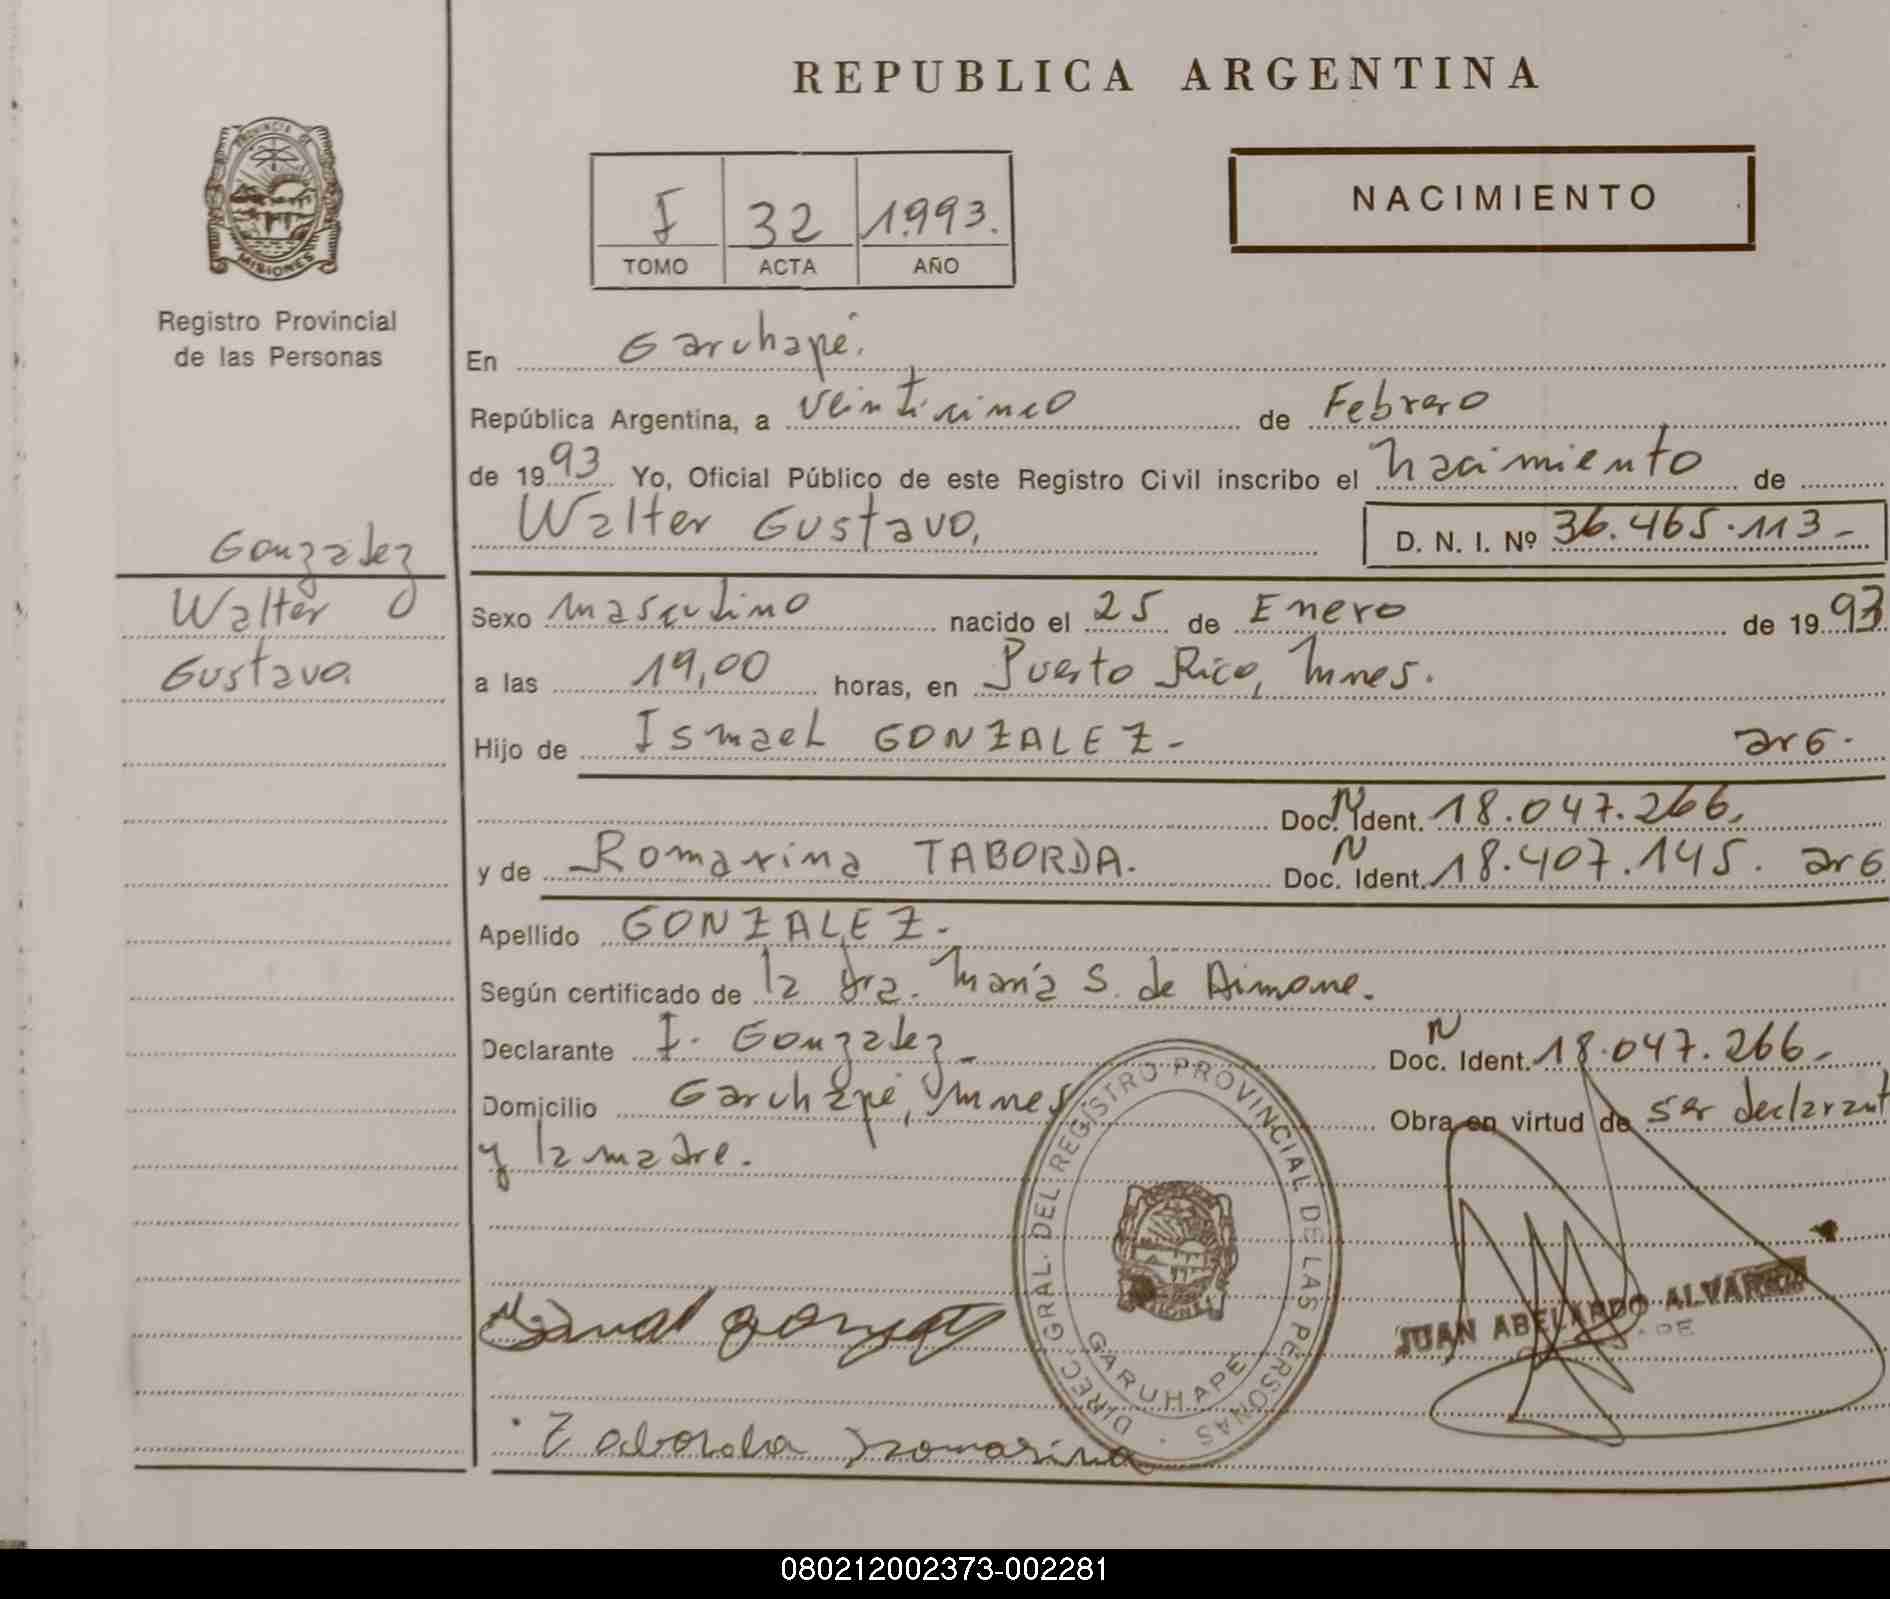 REPUBLICA ARGENTINA
PROVINCIA DE
MISIONES
Registro Provincial
de las Personas
I 32 1.993.
TOMO ACTA AÑO
NACIMIENTO
En Garuhapé.
República Argentina, a veinticinco de Febrero
de 1993 Yo, Oficial Público de este Registro Civil inscribo el nacimiento de
Walter Gustavo, D. N. I. Nº 36.465.113-
Gonzalez
Walter
Gustavo.
Sexo masculino nacido el 25 de Enero de 1993
a las 19,00 horas, en Puerto Rico, Mnes.
Hijo de Ismael GONZALEZ - arg.
Doc. N Ident. 18.047.266.
y de Romarina TABORDA. Doc. N Ident. 18.407.145. arg
Apellido GONZALEZ.
Según certificado de la Dra. María S. de Aimone.
Declarante I. Gonzalez - Doc. N Ident. 18.047.266.-
Domicilio Garuhapé, Mnes Obra en virtud de ser declarant
y la madre.
DIREC. GRAL. DEL REGISTRO PROVINCIAL DE LAS PERSONAS
MISIONES
GARUHAPE
JUAN ABELARDO ALVAREZ
Ismael gonzalez
Taborda Romarina
080212002373-002281